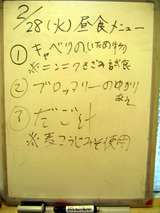 2/28(火)昼食メニュー
① キャベツのいため物
※ニンニクきざみ試食
② ブロッコリーのゆかり
あえ
③ だご汁
※麦こうじみそ使用